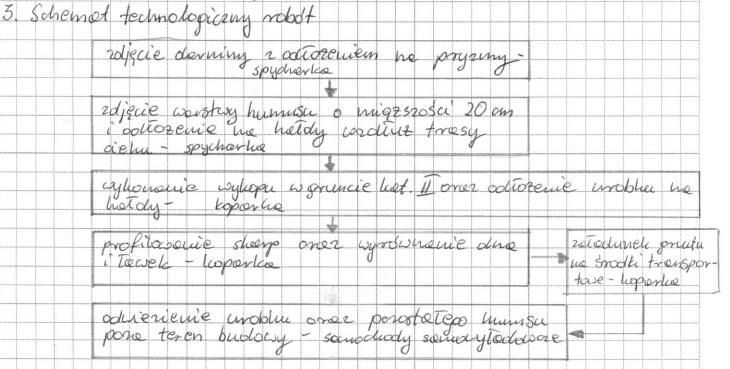 3. Schemat technologiczny robót
zdjęcie darniny z odłożeniem na pryzmy -
spycharka
zdjęcie warstwy humusu o miąższości 20 cm
i odłożenie na hałdy wzdłuż trasy
cieku - spycharka
wykonanie wykopu w gruncie kat. II oraz odłożenie urobku na
hałdy - koparka
profilowanie skarp oraz wyrównanie dna
i ławek - koparka
załadunek gruntu
na środki transpor-
towe - koparka
odwiezienie urobku oraz pozostałego humusu
poza teren budowy - samochody samowyładowcze